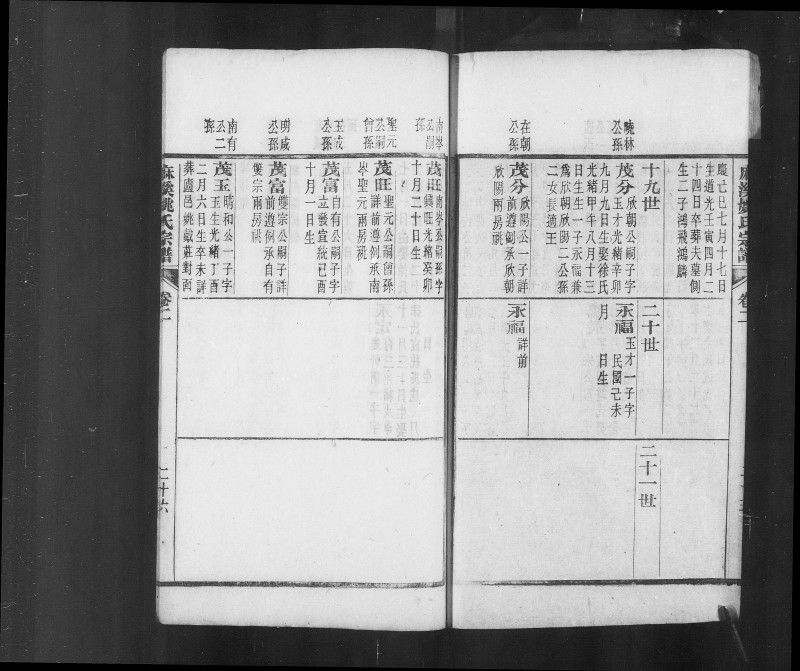 慶己巳七月十七日
生道光壬寅四月二
十四日卒葬夫墓側
生二子鴻飛鴻麟
十九世
二十世
二十一世
曉林
公孫
茂分欣朝公嗣子字
玉才光緒辛卯
九月九日生娶徐氏
光緒甲午八月十三
日生生一子永福兼
為欣朝欣陽二公孫
二女長適王
永福玉才一子字
民國己未
月 日生
在朝
公孫
茂分欣陽公一子詳
前遵例承欣朝
欣陽兩房祧
永福詳前
南岑
公嗣
孫
茂旺南岑公嗣孫字
錢旺光緒癸卯
十月二十日生
聖元
公嗣
曾孫
茂旺聖元公嗣曾孫
詳前遵例承南
岑聖元兩房祧
玉成
公孫
茂富自有公嗣子字
立發宣統己酉
十月一日生
明咸
公孫
茂富雙宗公嗣子詳
前遵例承自有
雙宗兩房祧
南有
公二
孫
茂玉晴和公一子字
玉生光緒丁酉
二月六日生卒未詳
葬廬邑姚戴莊對面
麻溪姚氏宗譜
卷二
二十六